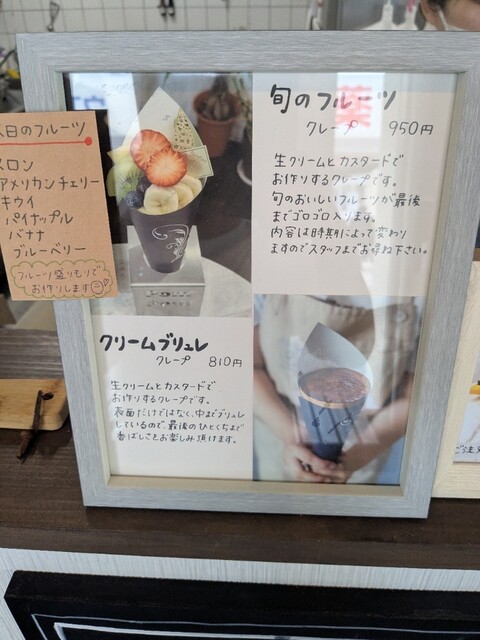 日のフルーツ
メロン
アメリカンチェリー
キウイ
パイナップル
バナナ
ブルーベリー
フルーツ盛りもりで
お作りします
旬のフルーツ
クレープ 950円
生クリームとカスタードで
お作りするクレープです。
旬のおいしいフルーツが最後
までゴロゴロ入ります。
内容は時期によって変わり
ますのでスタッフまでお尋ね下さい。
クリームブリュレ
クレープ 810円
生クリームとカスタードで
お作りするクレープです。
表面だけではなく、中までブリュレ
しているので、最後のひとくちまで
香ばしさをお楽しみ頂けます。